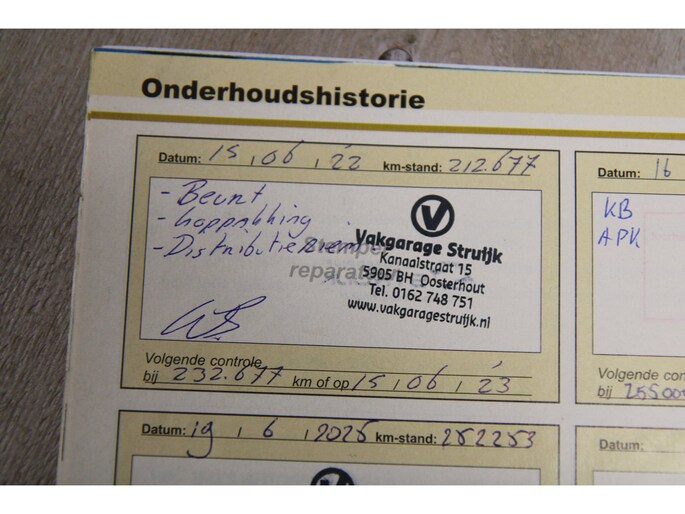 Onderhoudshistorie
Datum: 15 , 06 , '22 km-stand: 212.677
- Beurt
- koppakking
- Distributieriem
Stempel
reparateur
Vakgarage Struijk
Kanaalstraat 15
5905 BH Oosterhout
Tel. 0162 748 751
www.vakgaragestruijk.nl
Volgende controle
bij 232.677 km of op 15 , 06 , '23
Datum: 16
KB
APK
Volgende con
bij 255000
Datum: 19 , 6 , 2025 km-stand: 252253
Datum: